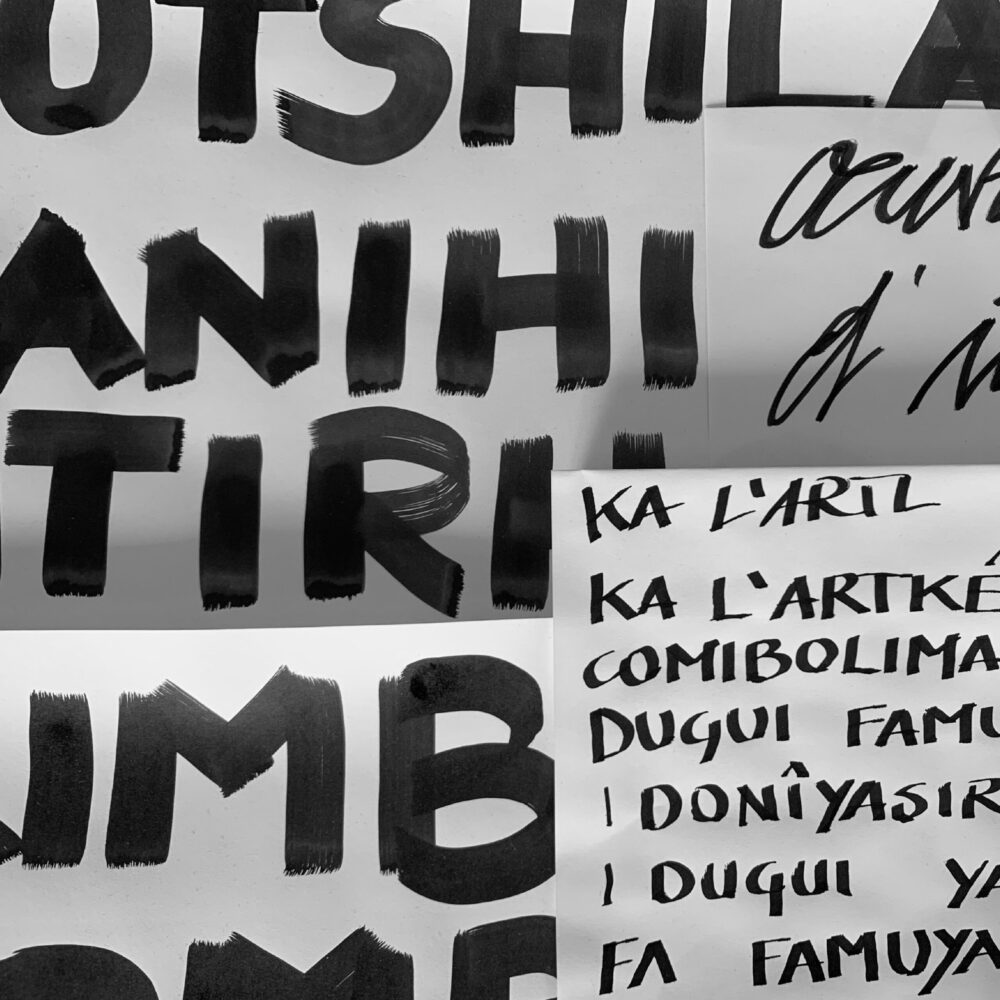 UTSHILA
ANIHI
TIRI
IMB
d'
KA L'ART
KA L'ARTKÉ
COMIBOLIMA
DUGUI FAMU
I DONÎYASIR
I DUGUI YA
FA FAMUYA